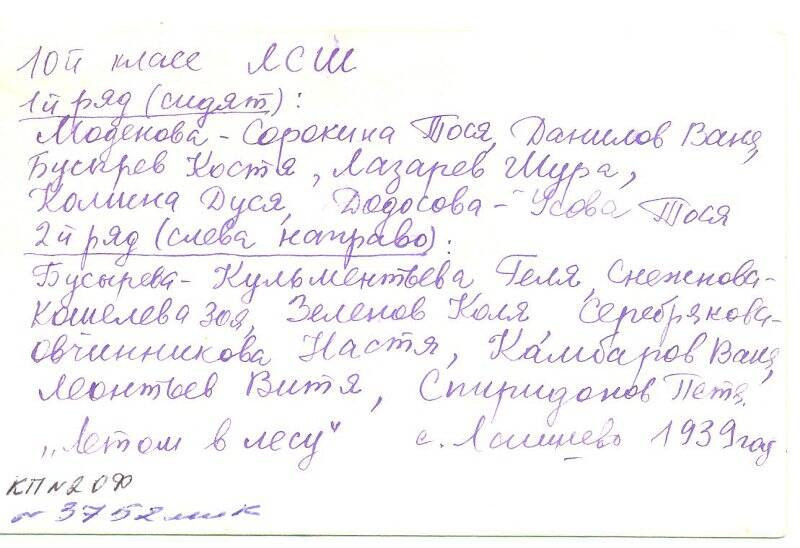 10й класс ЛСШ
1й ряд (сидят):
Моденова - Сорокина Тося, Данилов Ваня,
Бусырев Костя, Лазарев Шура,
Колина Дуся, Додосова - Усова Тося
2й ряд (слева направо):
Бусырева - Кульментьева Геля, Снежнова-
Кошелева Зоя, Зеленов Коля, Серебрякова-
Овчинникова Настя, Камбаров Ваня,
Леонтьев Витя, Спиридонов Петя.
„Летом в лесу" с. 1939 год
КП N2
3752